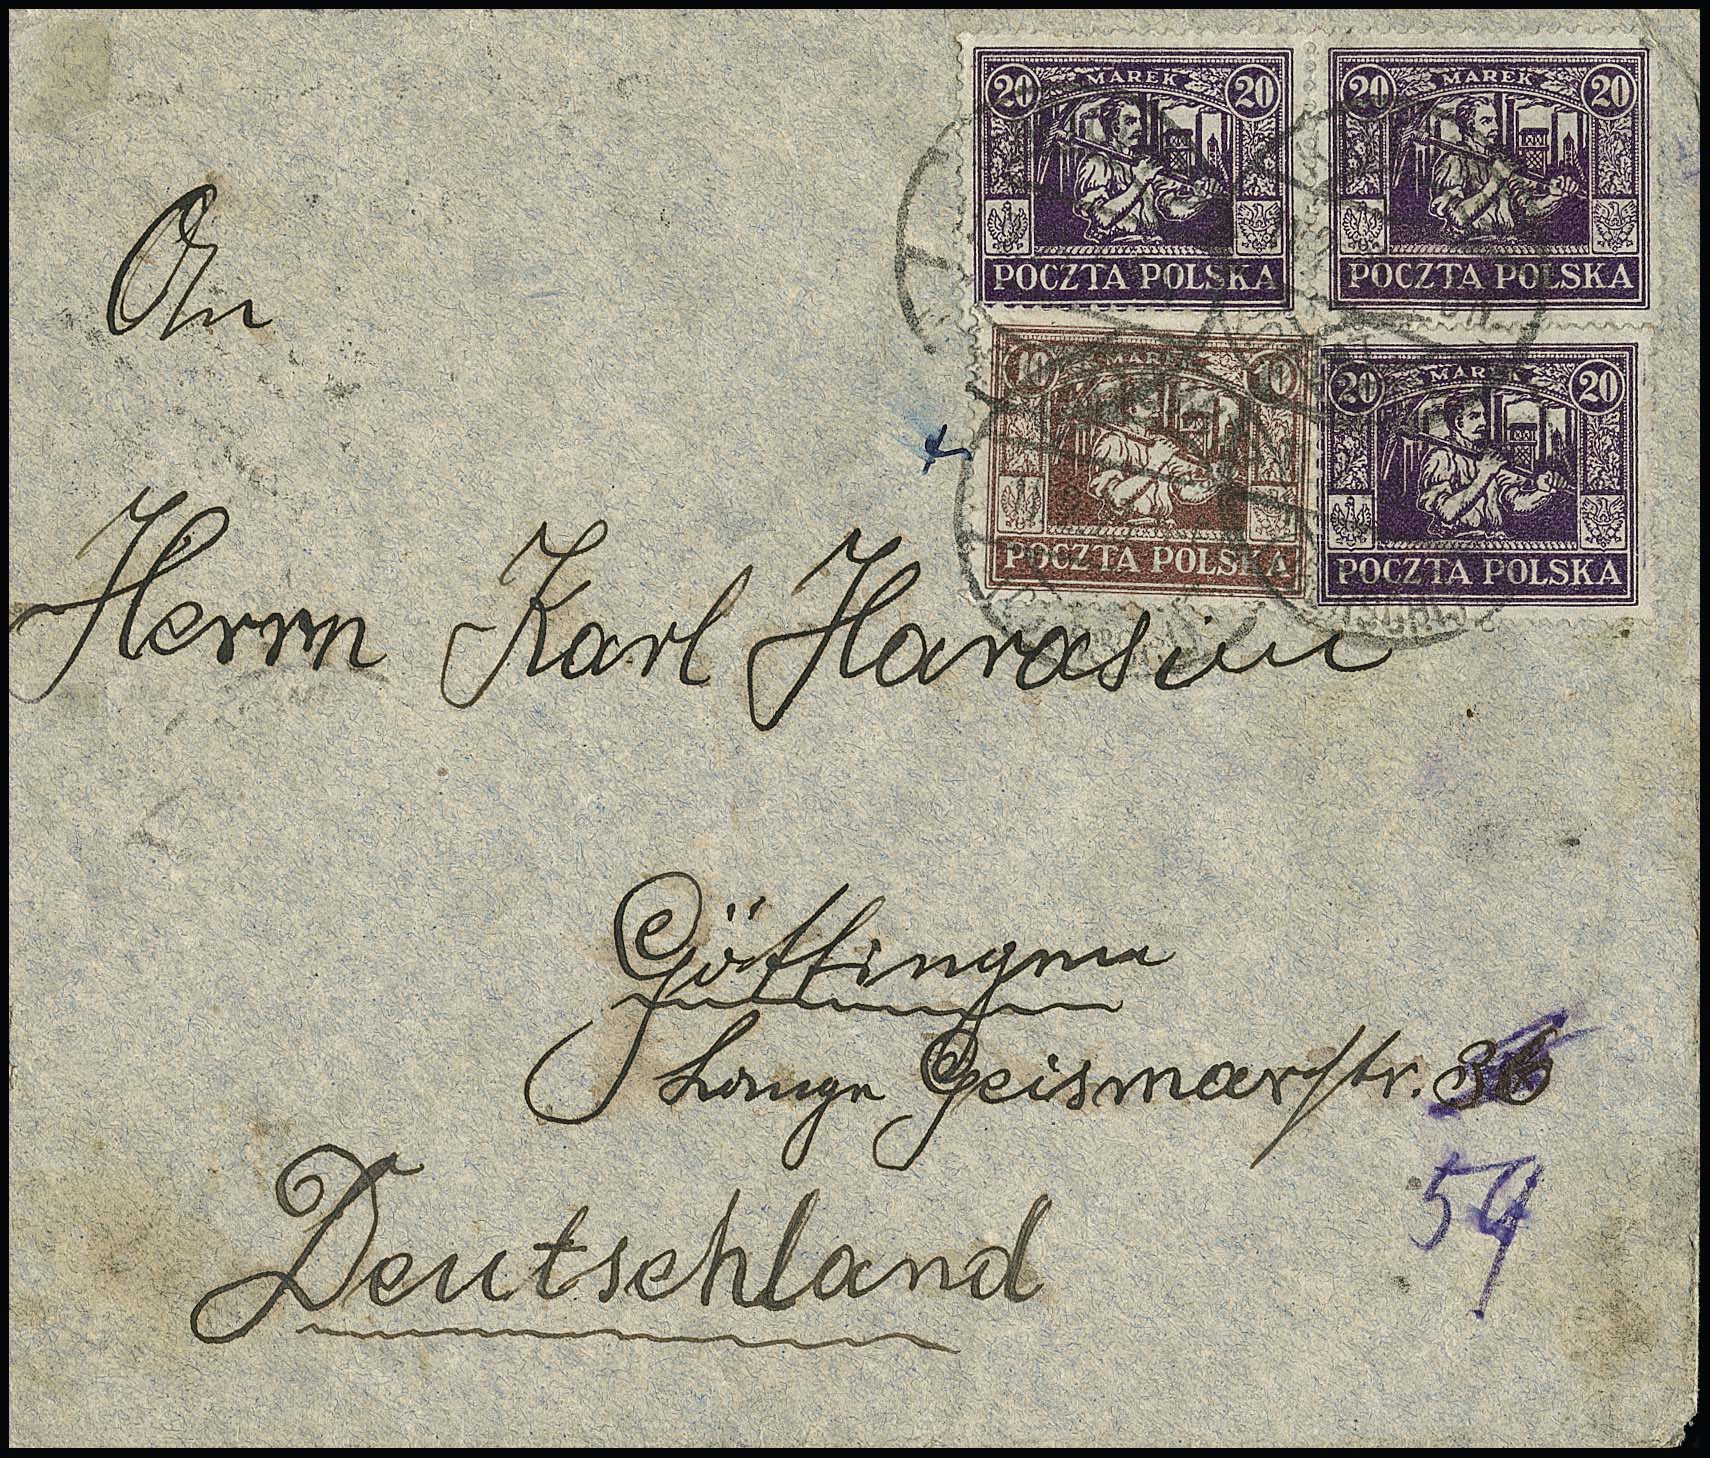 20 MAREK 20
POCZTA POLSKA
20 MAREK 20
POCZTA POLSKA
10 MAREK 10
POCZTA POLSKA
20 MAREK 20
POCZTA POLSKA
An
Herrn Karl Harasim
Göttingen
Lange Geismarstr. 36
59
Deutschland